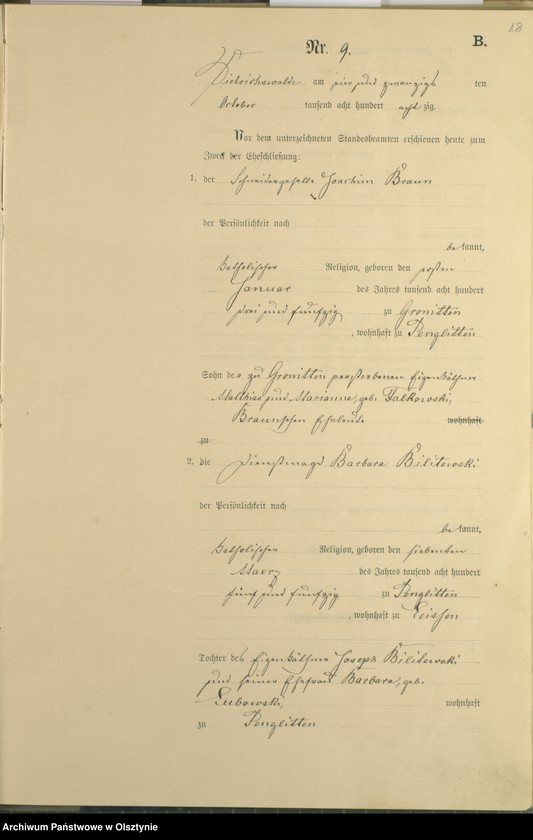 18
B.
Nr. 9.
Dietrichswalde am vier und zwanzigs ten
October tausend acht hundert acht zig.
Vor dem unterzeichneten Standesbeamten erschienen heute zum
Zweck der Eheschließung:
1. der Schneidergeselle Joachim Braun
der Persönlichkeit nach
be kannt,
katholischer Religion, geboren den ersten
Januar des Jahres tausend acht hundert
drei und fünfzig zu Gronitten
, wohnhaft zu Penglitten
Sohn der zu Gronitten verstorbenen Eigenkäthner
Matthias und Marianna, geb. Falkowski,
Braunschen Eheleute wohnhaft
zu
2. die Dienstmagd Barbara Bilitewski
der Persönlichkeit nach
be kannt,
katholischer Religion, geboren den siebenten
Maerz des Jahres tausend acht hundert
fünf und fünfzig zu Penglitten
, wohnhaft zu Leissen
Tochter des Eigenkäthner Joseph Bilitewski
und seiner Ehefrau Barbara, geb.
Lubowski, wohnhaft
zu Penglitten
Archiwum Państwowe w Olsztynie